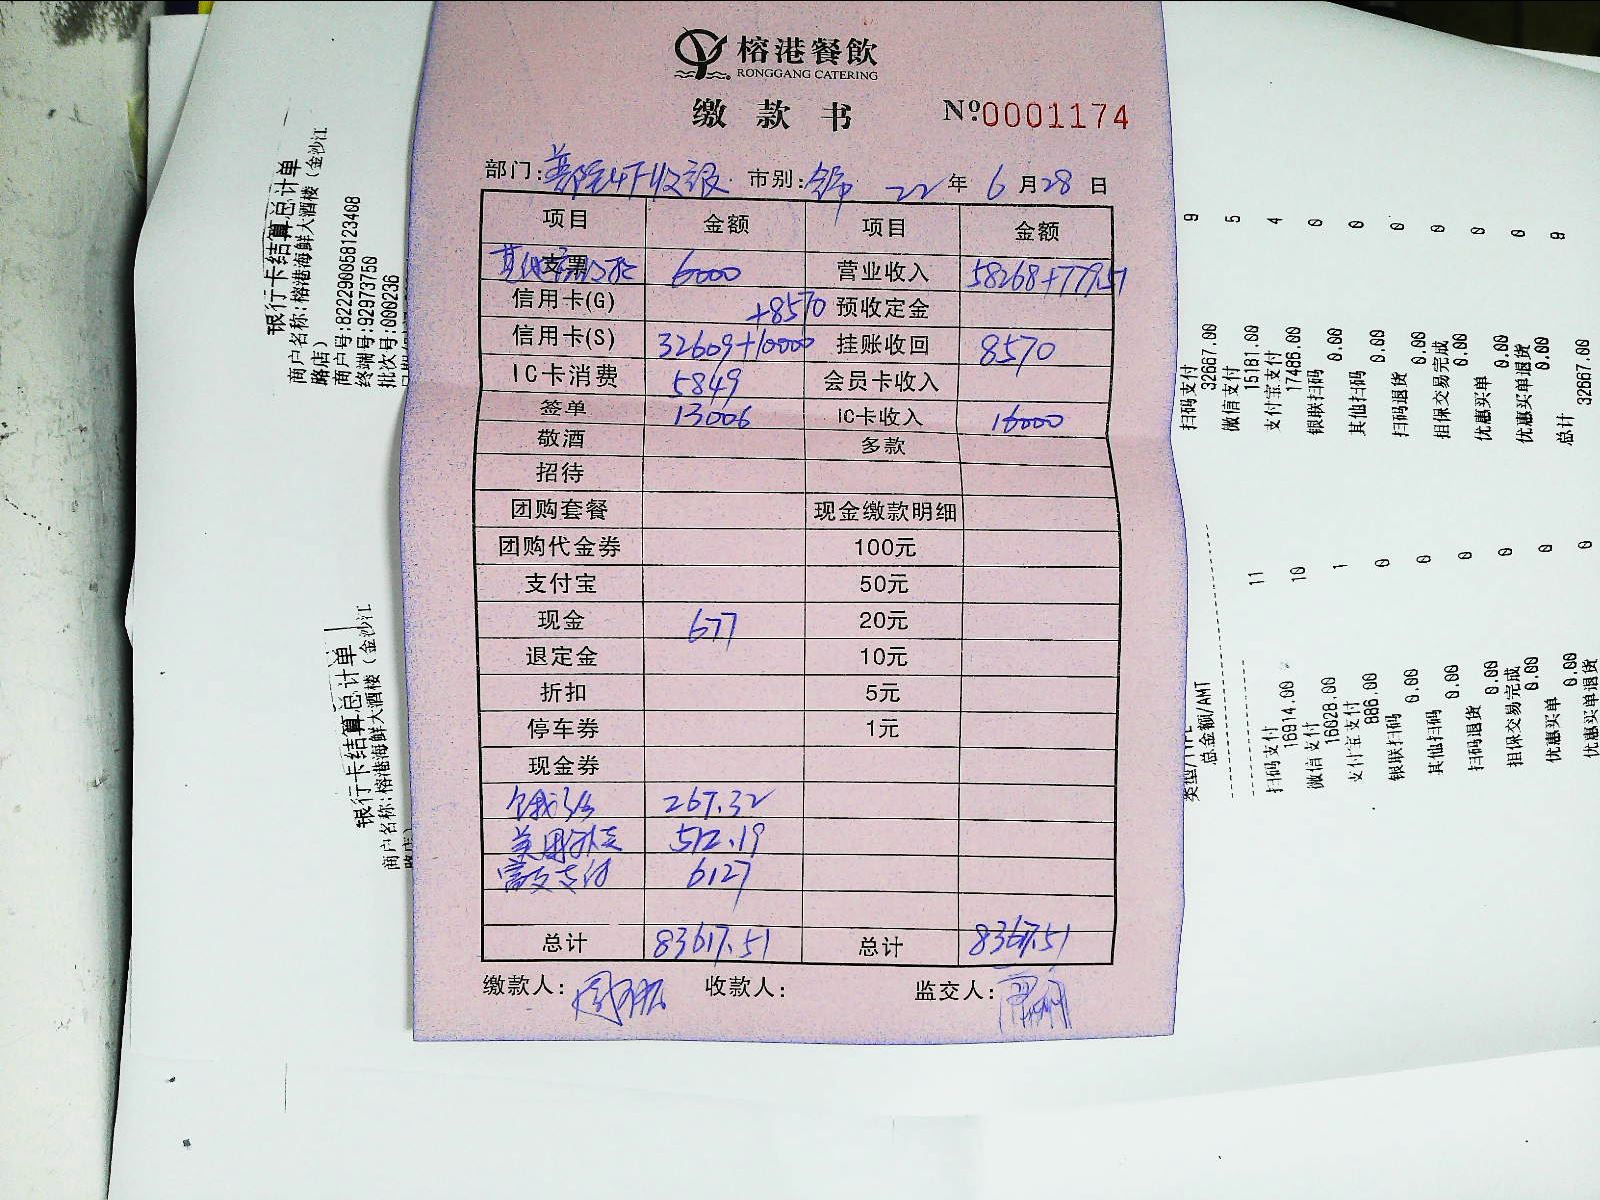 榕港餐飲
RONGGANG CATERING
缴款书 Nº0001174
部门: 收银 市别: 22年6月28日
项目 金额 项目 金额
支票 6000 营业收入 58268+779.51
信用卡(G) +8570 预收定金
信用卡(S) 32609+10000 挂账收回 8570
IC卡消费 5849 会员卡收入
签单 13006 IC卡收入 16000
敬酒 多款
招待
团购套餐 现金缴款明细
团购代金券 100元
支付宝 50元
现金 677 20元
退定金 10元
折扣 5元
停车券 1元
现金券
267.32
美团外卖 512.19
支付 6127
总计 83617.51 总计 83617.51
缴款人: 收款人: 监交人:
银行卡结算总计单
商户名称:榕港海鲜大酒楼(金沙江
路店)
商户号:822290058123408
终端号:92973750
批次号:000236
扫码支付 9
32667.00
微信支付 5
15181.00
支付宝支付 4
17486.00
银联扫码 0
0.00
其他扫码 0
0.00
扫码退货 0
0.00
担保交易完成 0
0.00
优惠买单 0
0.00
优惠买单退货 0
0.00
总计 9
32667.00
银行卡结算总计单
商户名称:榕港海鲜大酒楼(金沙江
类型/TYPE
总金额/AMT
扫码支付 11
16914.00
微信支付 10
16028.00
支付宝支付 1
886.00
银联扫码 0
0.00
其他扫码 0
0.00
扫码退货 0
0.00
担保交易完成 0
0.00
优惠买单 0
0.00
优惠买单退货 0